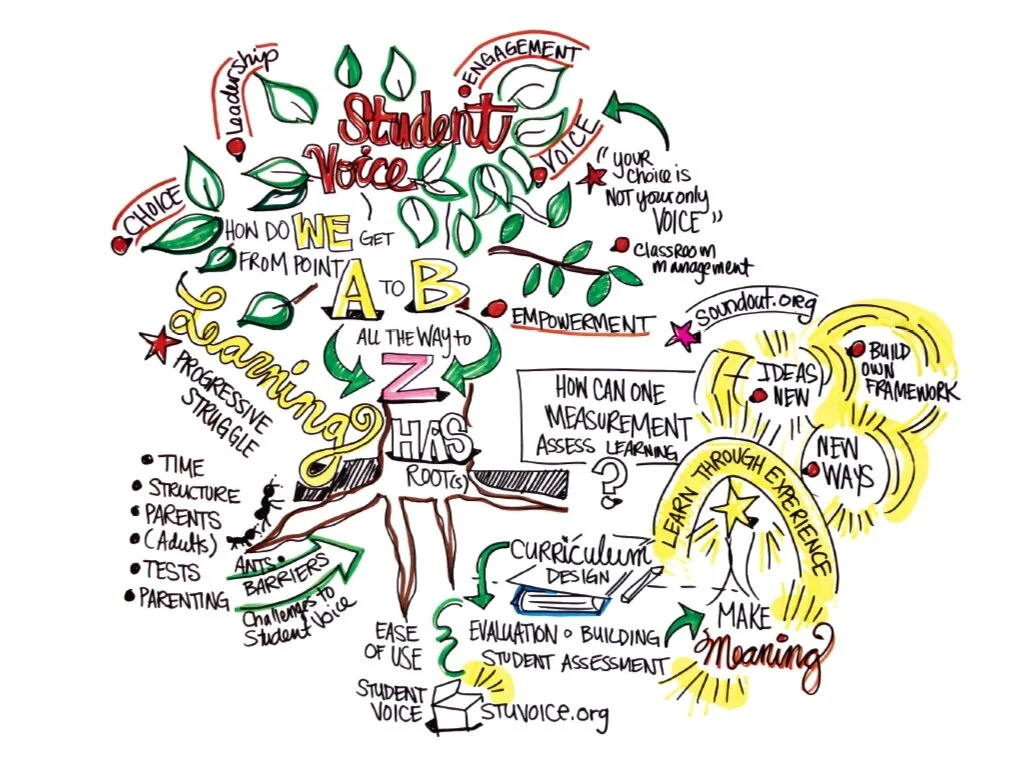 Leadership
ENGAGEMENT
Student
Voice
VOICE
CHOICE
"YOUR
choice is
NOT your only
VOICE"
HOW DO WE GET
FROM POINT
A TO B
ALL THE WAY to
Z
HAS
ROOT(s)
Classroom
management
EMPOWERMENT
soundout.org
Learning
PROGRESSIVE
STRUGGLE
HOW CAN ONE
MEASUREMENT
ASSESS LEARNING
?
IDEAS
NEW
BUILD
OWN
FRAMEWORK
NEW
WAYS
LEARN THROUGH EXPERIENCE
TIME
STRUCTURE
PARENTS
(Adults)
TESTS
PARENTING
ANTS
BARRIERS
Challenges to
Student Voice
CURRICULUM
DESIGN
EASE
OF USE
EVALUATION BUILDING
STUDENT ASSESSMENT
MAKE
Meaning
STUDENT
VOICE
STUVOICE.org